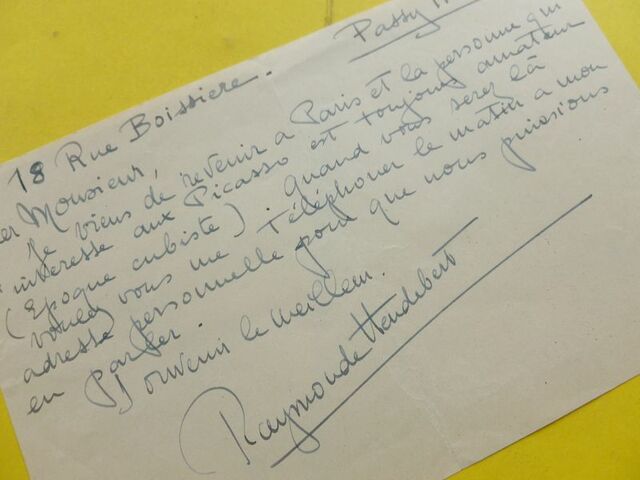 18 Rue Boissiere. Passy
er Monsieur,
Je viens de revenir à Paris et la personne qui
interesse aux Picasso est toujours amateur
(Epoque cubiste). Quand vous serez là
voulez vous me Téléphoner le matin à mon
adresse personnelle pour que nous puissions
en parler.
Souvenir le meilleur.
Raymonde Heudebert